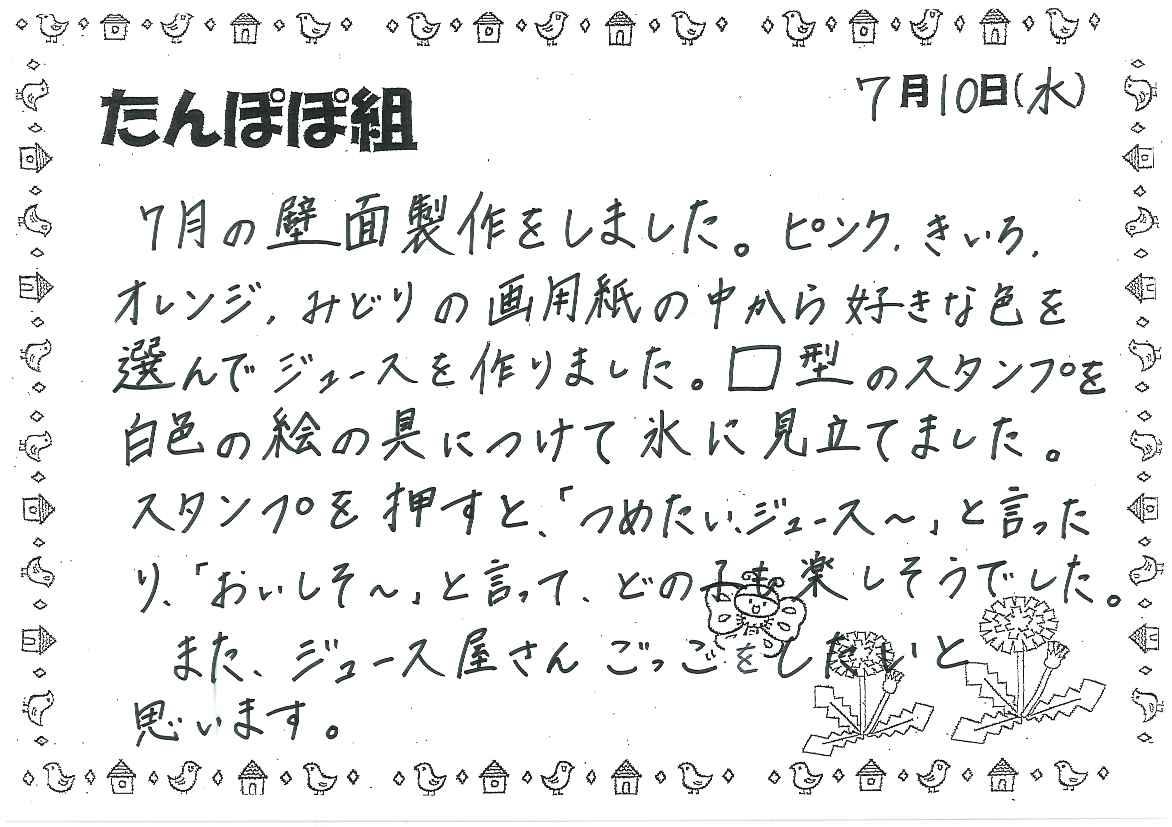 たんぽぽ組
7月10日(水)
7月の壁面製作をしました。ピンク、きいろ、
オレンジ、みどりの画用紙の中から好きな色を
選んでジュースを作りました。口型のスタンプを
白色の絵の具につけて氷に見立てました。
スタンプを押すと、「つめたい、ジュース〜」と言った
り、「おいしそ〜」と言って、どの子も楽しそうでした。
また、ジュース屋さんごっこをしたいと
思います。